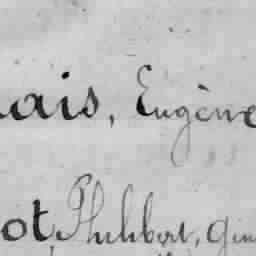 ais, Eugène
ot, Philibert,